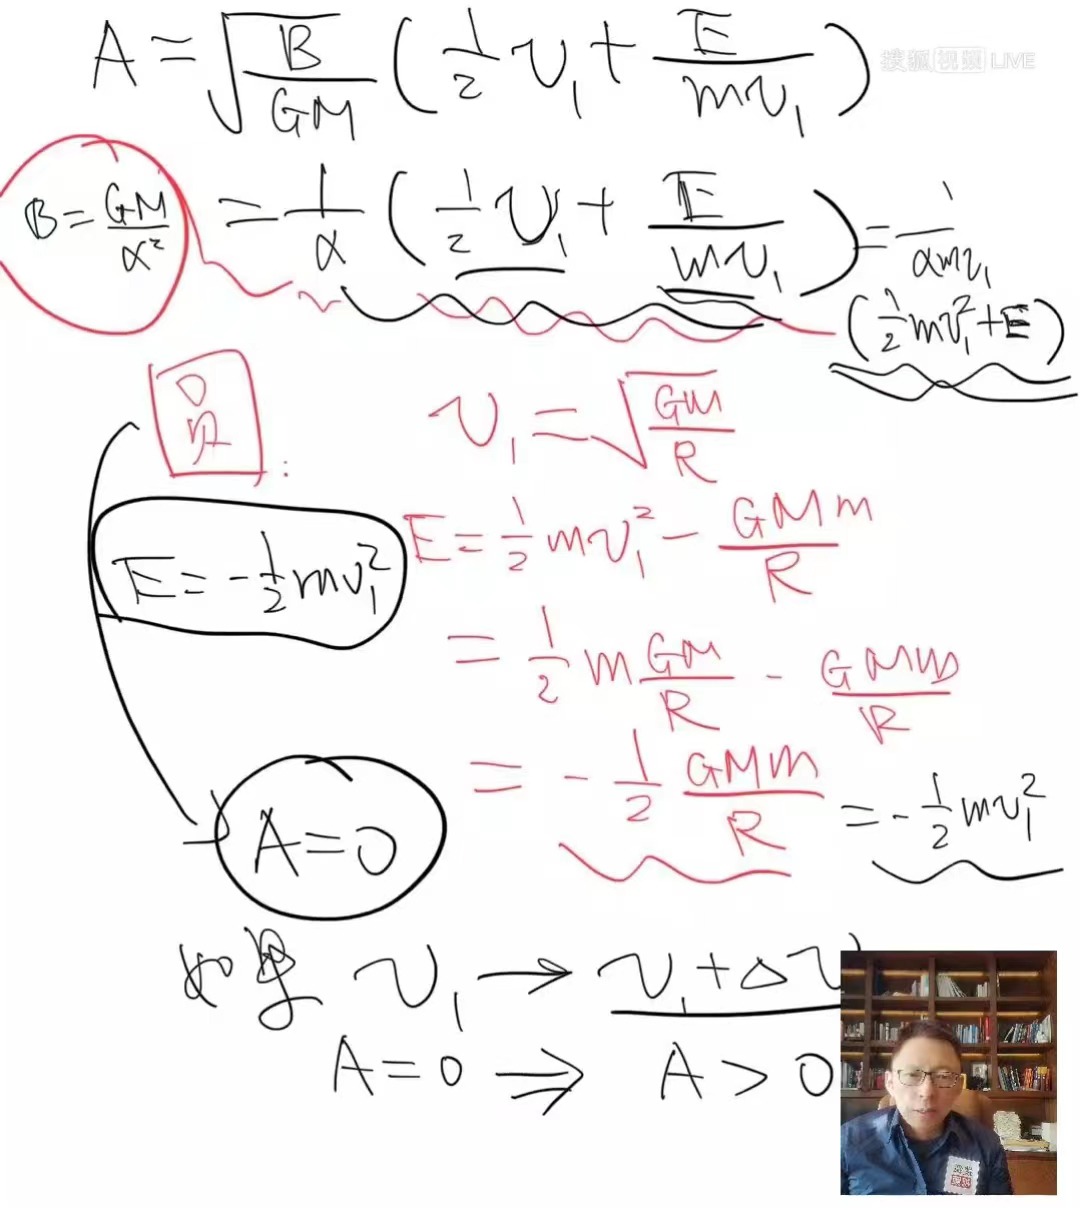 A = √(B/GM) (1/2 v₁ + E/(mv₁))
搜狐视频 LIVE
B = GM/α² = 1/α (1/2 v₁ + E/(mv₁)) = 1/(αmv₁)
(1/2 mv₁² + E)
v₁ = √(GM/R)
E = -1/2 mv₁²
E = 1/2 mv₁² - GMm/R
= 1/2 m GM/R - GMm/R
= - 1/2 GMm/R = - 1/2 mv₁²
A = 0
如果 v₁ → v₁ + Δv
A = 0 ⇒ A > 0